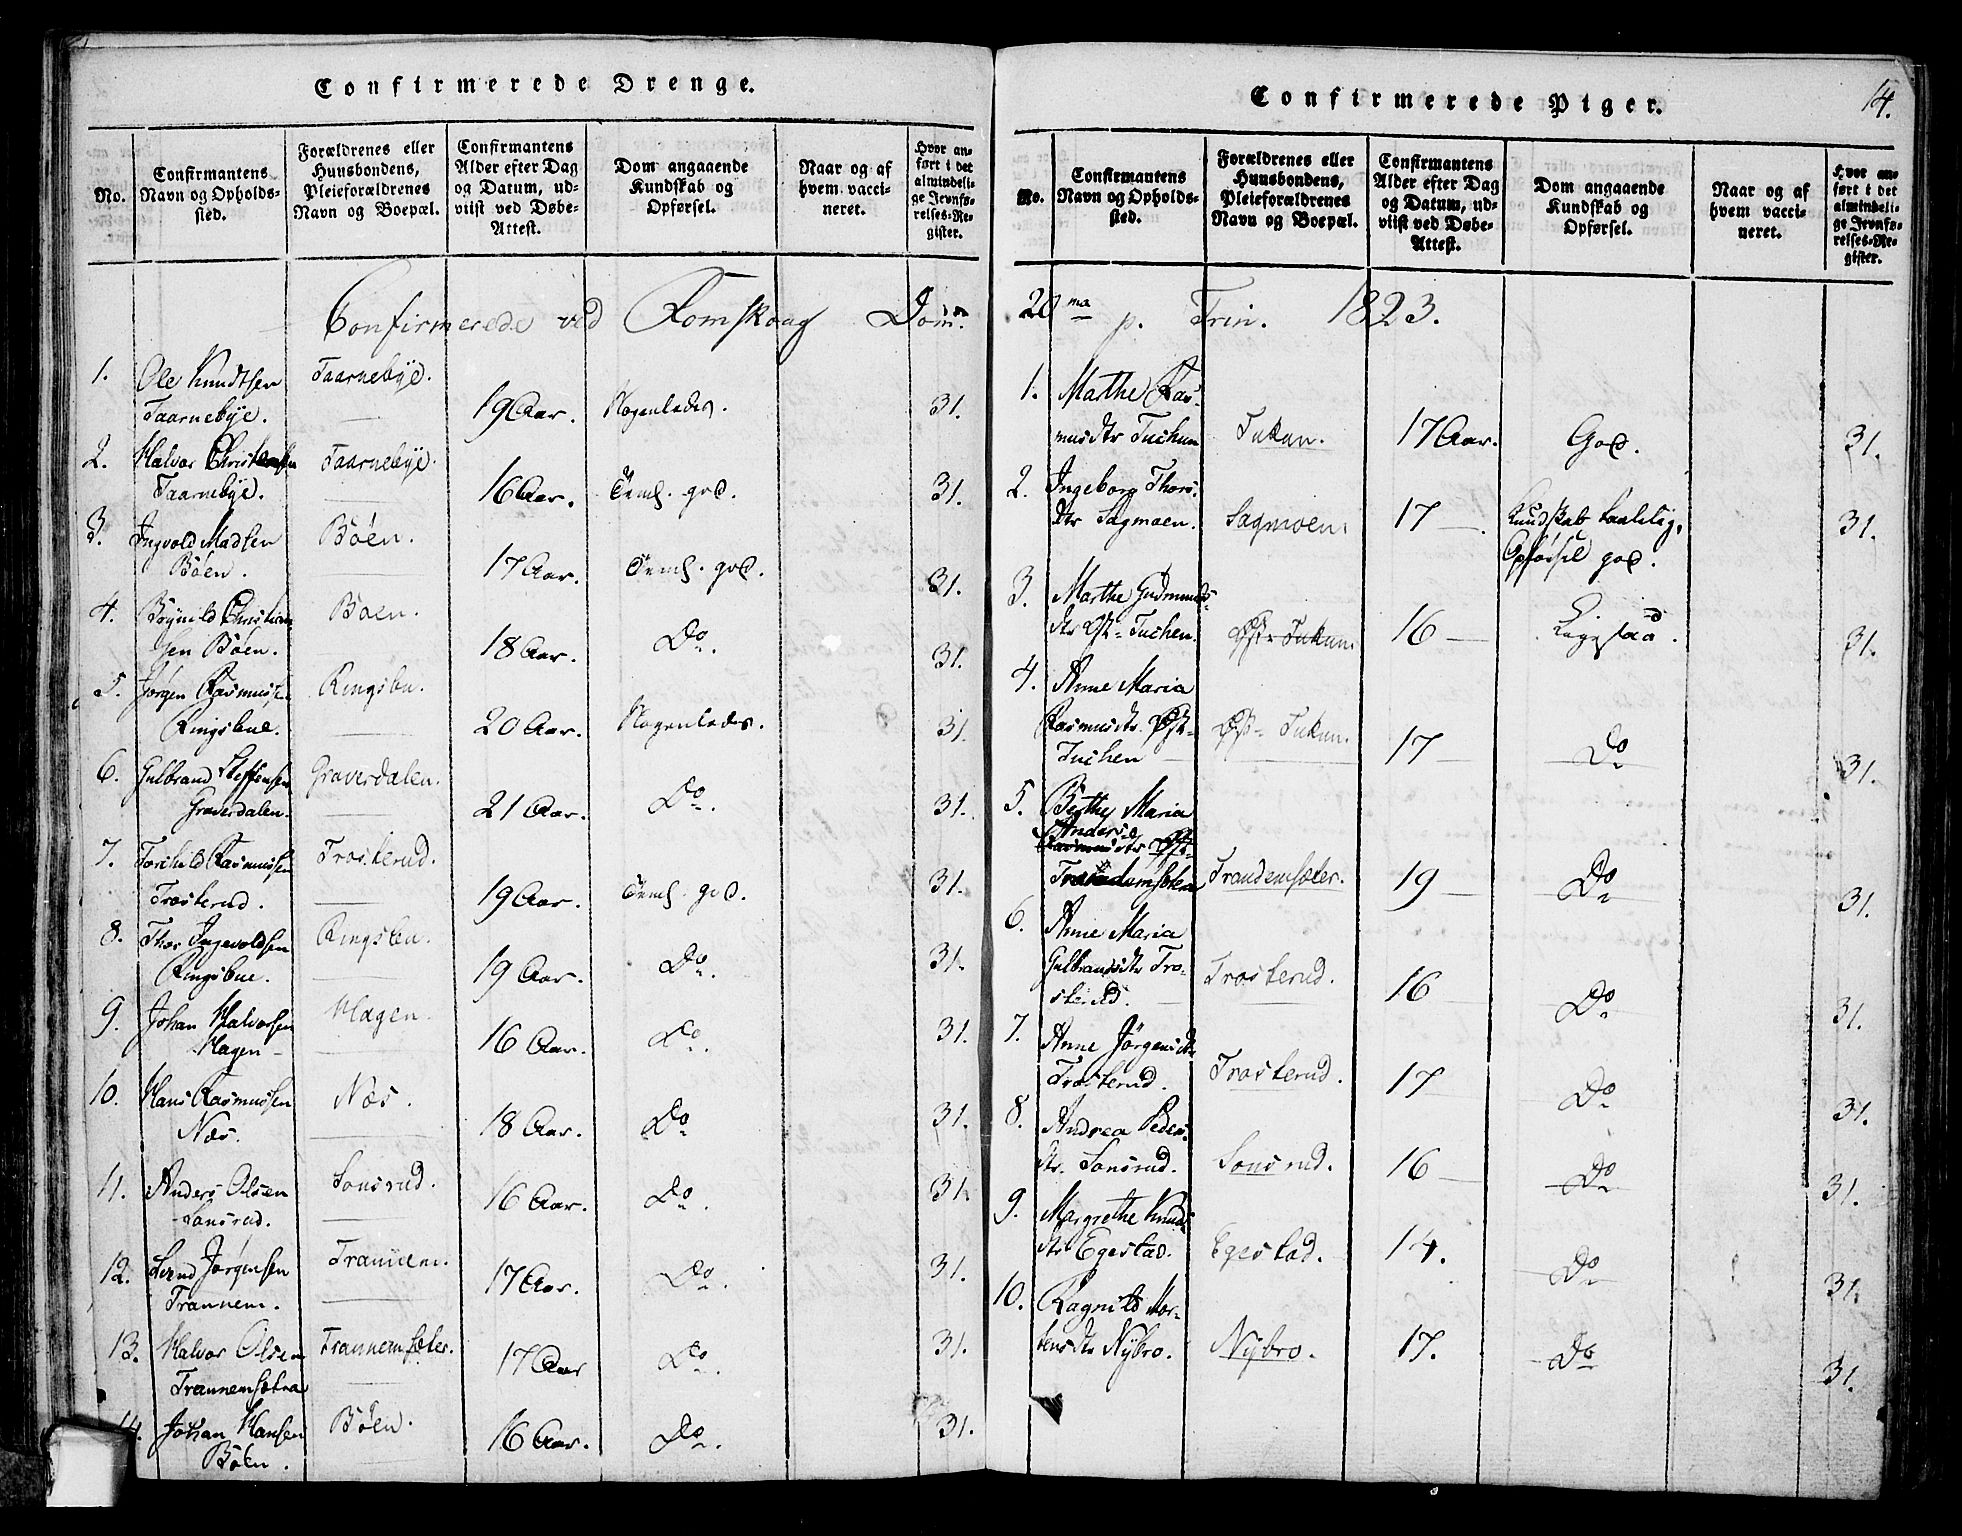 Confirmerede Drenge.
No.
Confirmantens Navn og Opholds-sted.
Forældrenes eller Huusbondens, Pleieforældrenes Navn og Boepæl.
Confirmantens Alder efter Dag og Datum, ud-viist ved Døbe-Attest.
Dom angaaende Kundskab og Opførsel.
Naar og af hvem vacci-neret.
Hvor an-ført i det almindeli-ge Jevnfø-relses-Re-gister.
Confirmerede ved Romskoug Dom.
1. Ole Knudtsen Taarnebye. 19 Aar. Nogenledes. 31.
Taarnebye.
2. Halvor Christensen Taarnebye. 16 Aar. Teml. god. 31.
Taarnebye.
3. Ingvold Madsen Böen. 17 Aar. Teml. god. 31.
Böen.
4. Christian- Boen. 18 Aar. Do. 31.
sen Böen.
5. Jørgen Rasmussen Ringsbu. 20 Aar. Nogenledes. 31.
Ringsbue.
6. Gulbrand Steffensen Graverdalen. 21 Aar. Do. 31.
Graverdalen.
7. Torchild Rasmussen Trosterud. 19 Aar. Teml. god. 31.
Trosterud.
8. Thor Ingevoldsen Ringsbu. 19 Aar. Do. 31.
Ringsbue.
9. Johan Halvorsen Hagen. 16 Aar. Do. 31.
Hagen
10. Hans Rasmussen Næs. 18 Aar. Do 31.
Næs.
11. Anders Olsen Sonsrud. 16 Aar. Do. 31.
Sonsrud.
12. Jørgensen Trannem. 17 Aar. Do. 31.
Trannem.
13. Halvor Olsen Trannemsæter. 17 Aar Do. 31.
Trannemsetra
14. Johan Hansen Böen. 16 Aar. Do. 31.
Böen.
Confirmerede Piger.
14.
No.
Confirmantens Navn og Opholds-sted.
Forældrenes eller Huusbondens, Pleieforældrenes Navn og Boepæl.
Confirmantens Alder efter Dag og Datum, ud-viist ved Døbe-Attest.
Dom angaaende Kundskab og Opførsel.
Naar og af hvem vacci-neret.
Hvor an-ført i det almindeli-ge Jevnfø-relses-Re-gister.
20ma p. Trin. 1823.
1. Marthe Ras-
musdtr Tuchun Tukun. 17 Aar. God. 31.
2. Ingeborg Thors-
dtr Sagmoen. Sagmoen. 17 Kundskab taalelig, 31.
Opførsel god.
3. Marthe Gudmunds-
dtr Øst-Tuchen. Øst-Tukun. 16 Ligesaa 31.
4. Anne Maria
Rasmusdtr. Øst- Øst-Tukun. 17 Do 31.
Tuchen
5. Berthe Maria
Anders
Rasmusdtr Øst-
Trandemsæter. 19 Do 31.
6. Anne Maria
Gulbrandsdtr Tro- Trosterud. 16 Do 31.
sterud.
7. Anne Jörgensdtr
Trosterud. Trosterud. 17 Do 31.
8. Andrea Peders-
dtr. Sonsrud. Sonsrud. 16 Do 31.
9. Margrethe Knuds
dtr Egestad. Egestad. 14. Do 31.
10. Ragnild Mor-
tensdtr Nybro. Nybro. 17. Do 31.